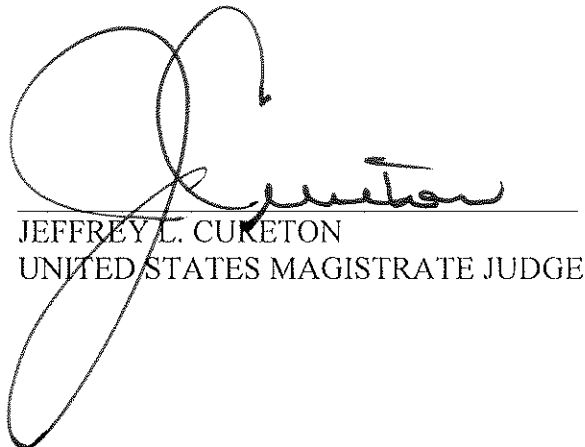 JCureton
JEFFREY L. CURETON
UNITED STATES MAGISTRATE JUDGE